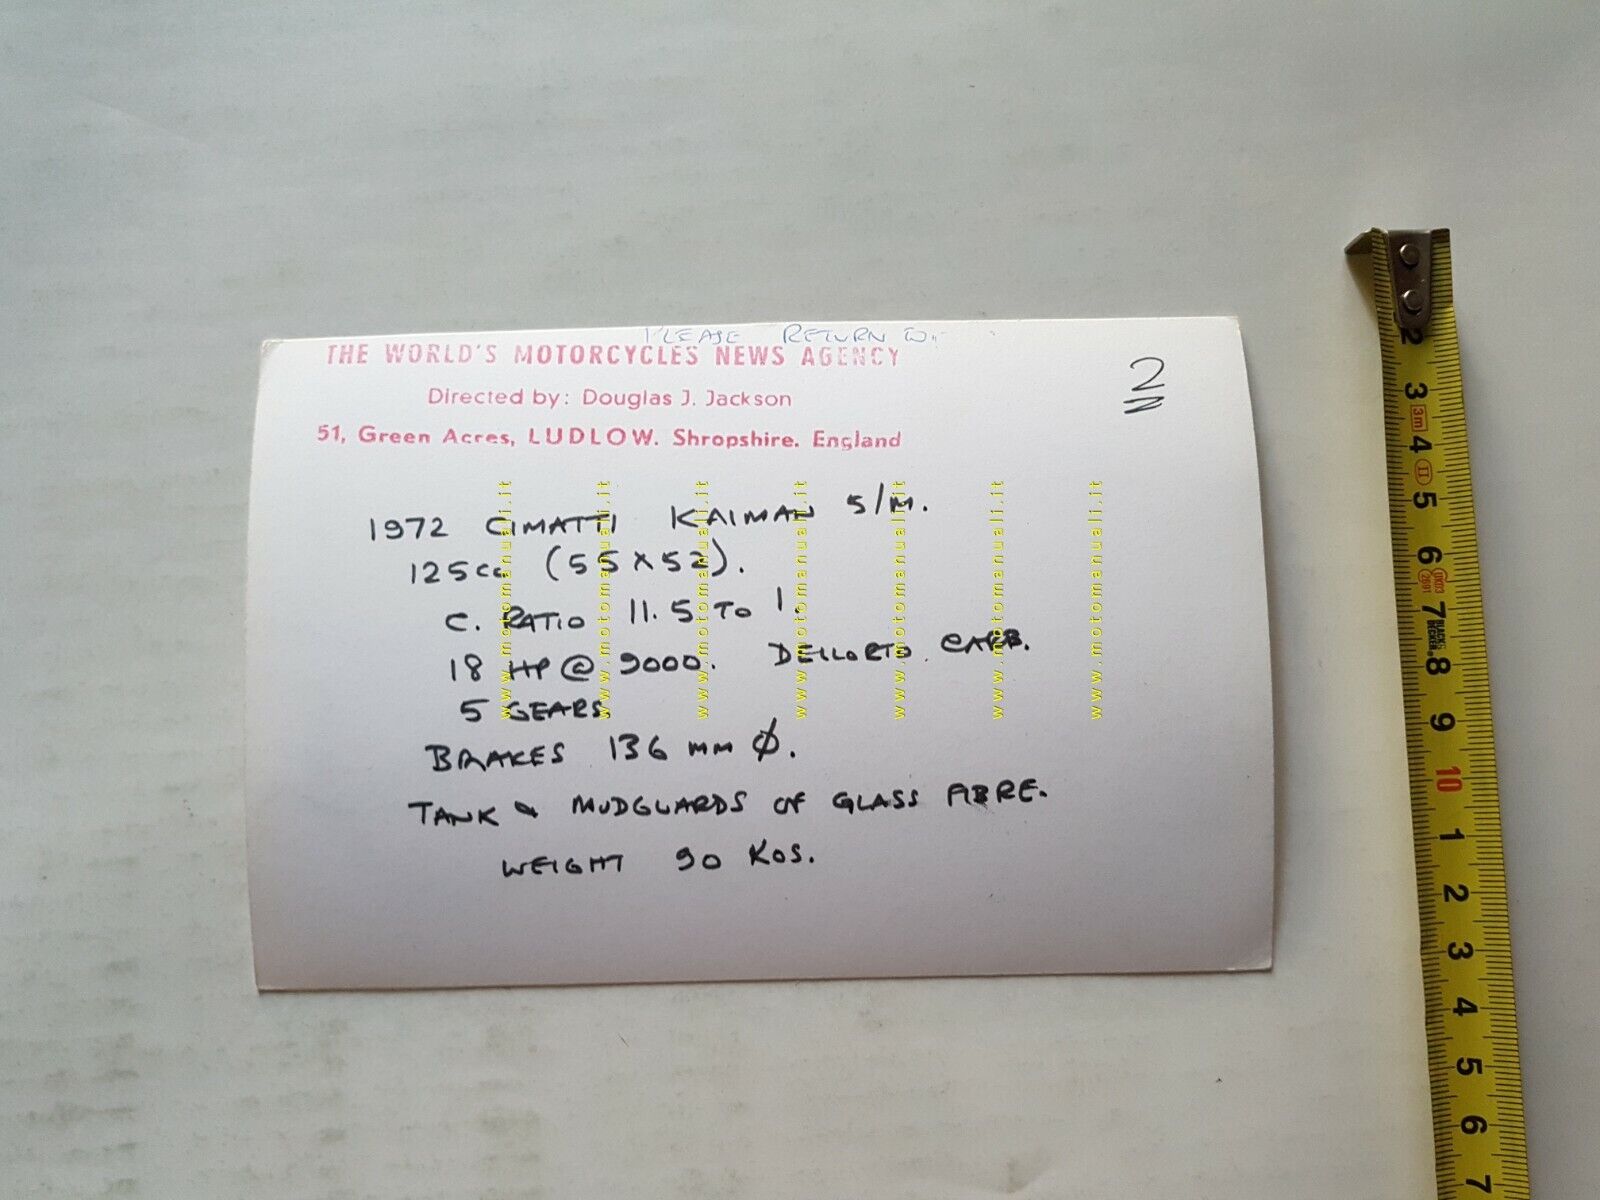 PLEASE RETURN TO:-
THE WORLD'S MOTORCYCLES NEWS AGENCY
Directed by: Douglas J. Jackson
51, Green Acres, LUDLOW. Shropshire. England
2
1972 CIMATTI KAIMAN S/M.
125cc (55 x 52).
C. RATIO 11.5 TO 1.
18 HP @ 9000. DELLORTO CARB.
5 GEARS
BRAKES 136 mm Ø.
TANK & MUDGUARDS OF GLASS FIBRE.
WEIGHT 90 KGS.
www.motomanuali.it
www.motomanuali.it
www.motomanuali.it
www.motomanuali.it
www.motomanuali.it
www.motomanuali.it
www.motomanuali.it
2
3
3m
4
II
5
6
7
BLACK & DECKER
8
9
10
1
2
3
4
5
6
7